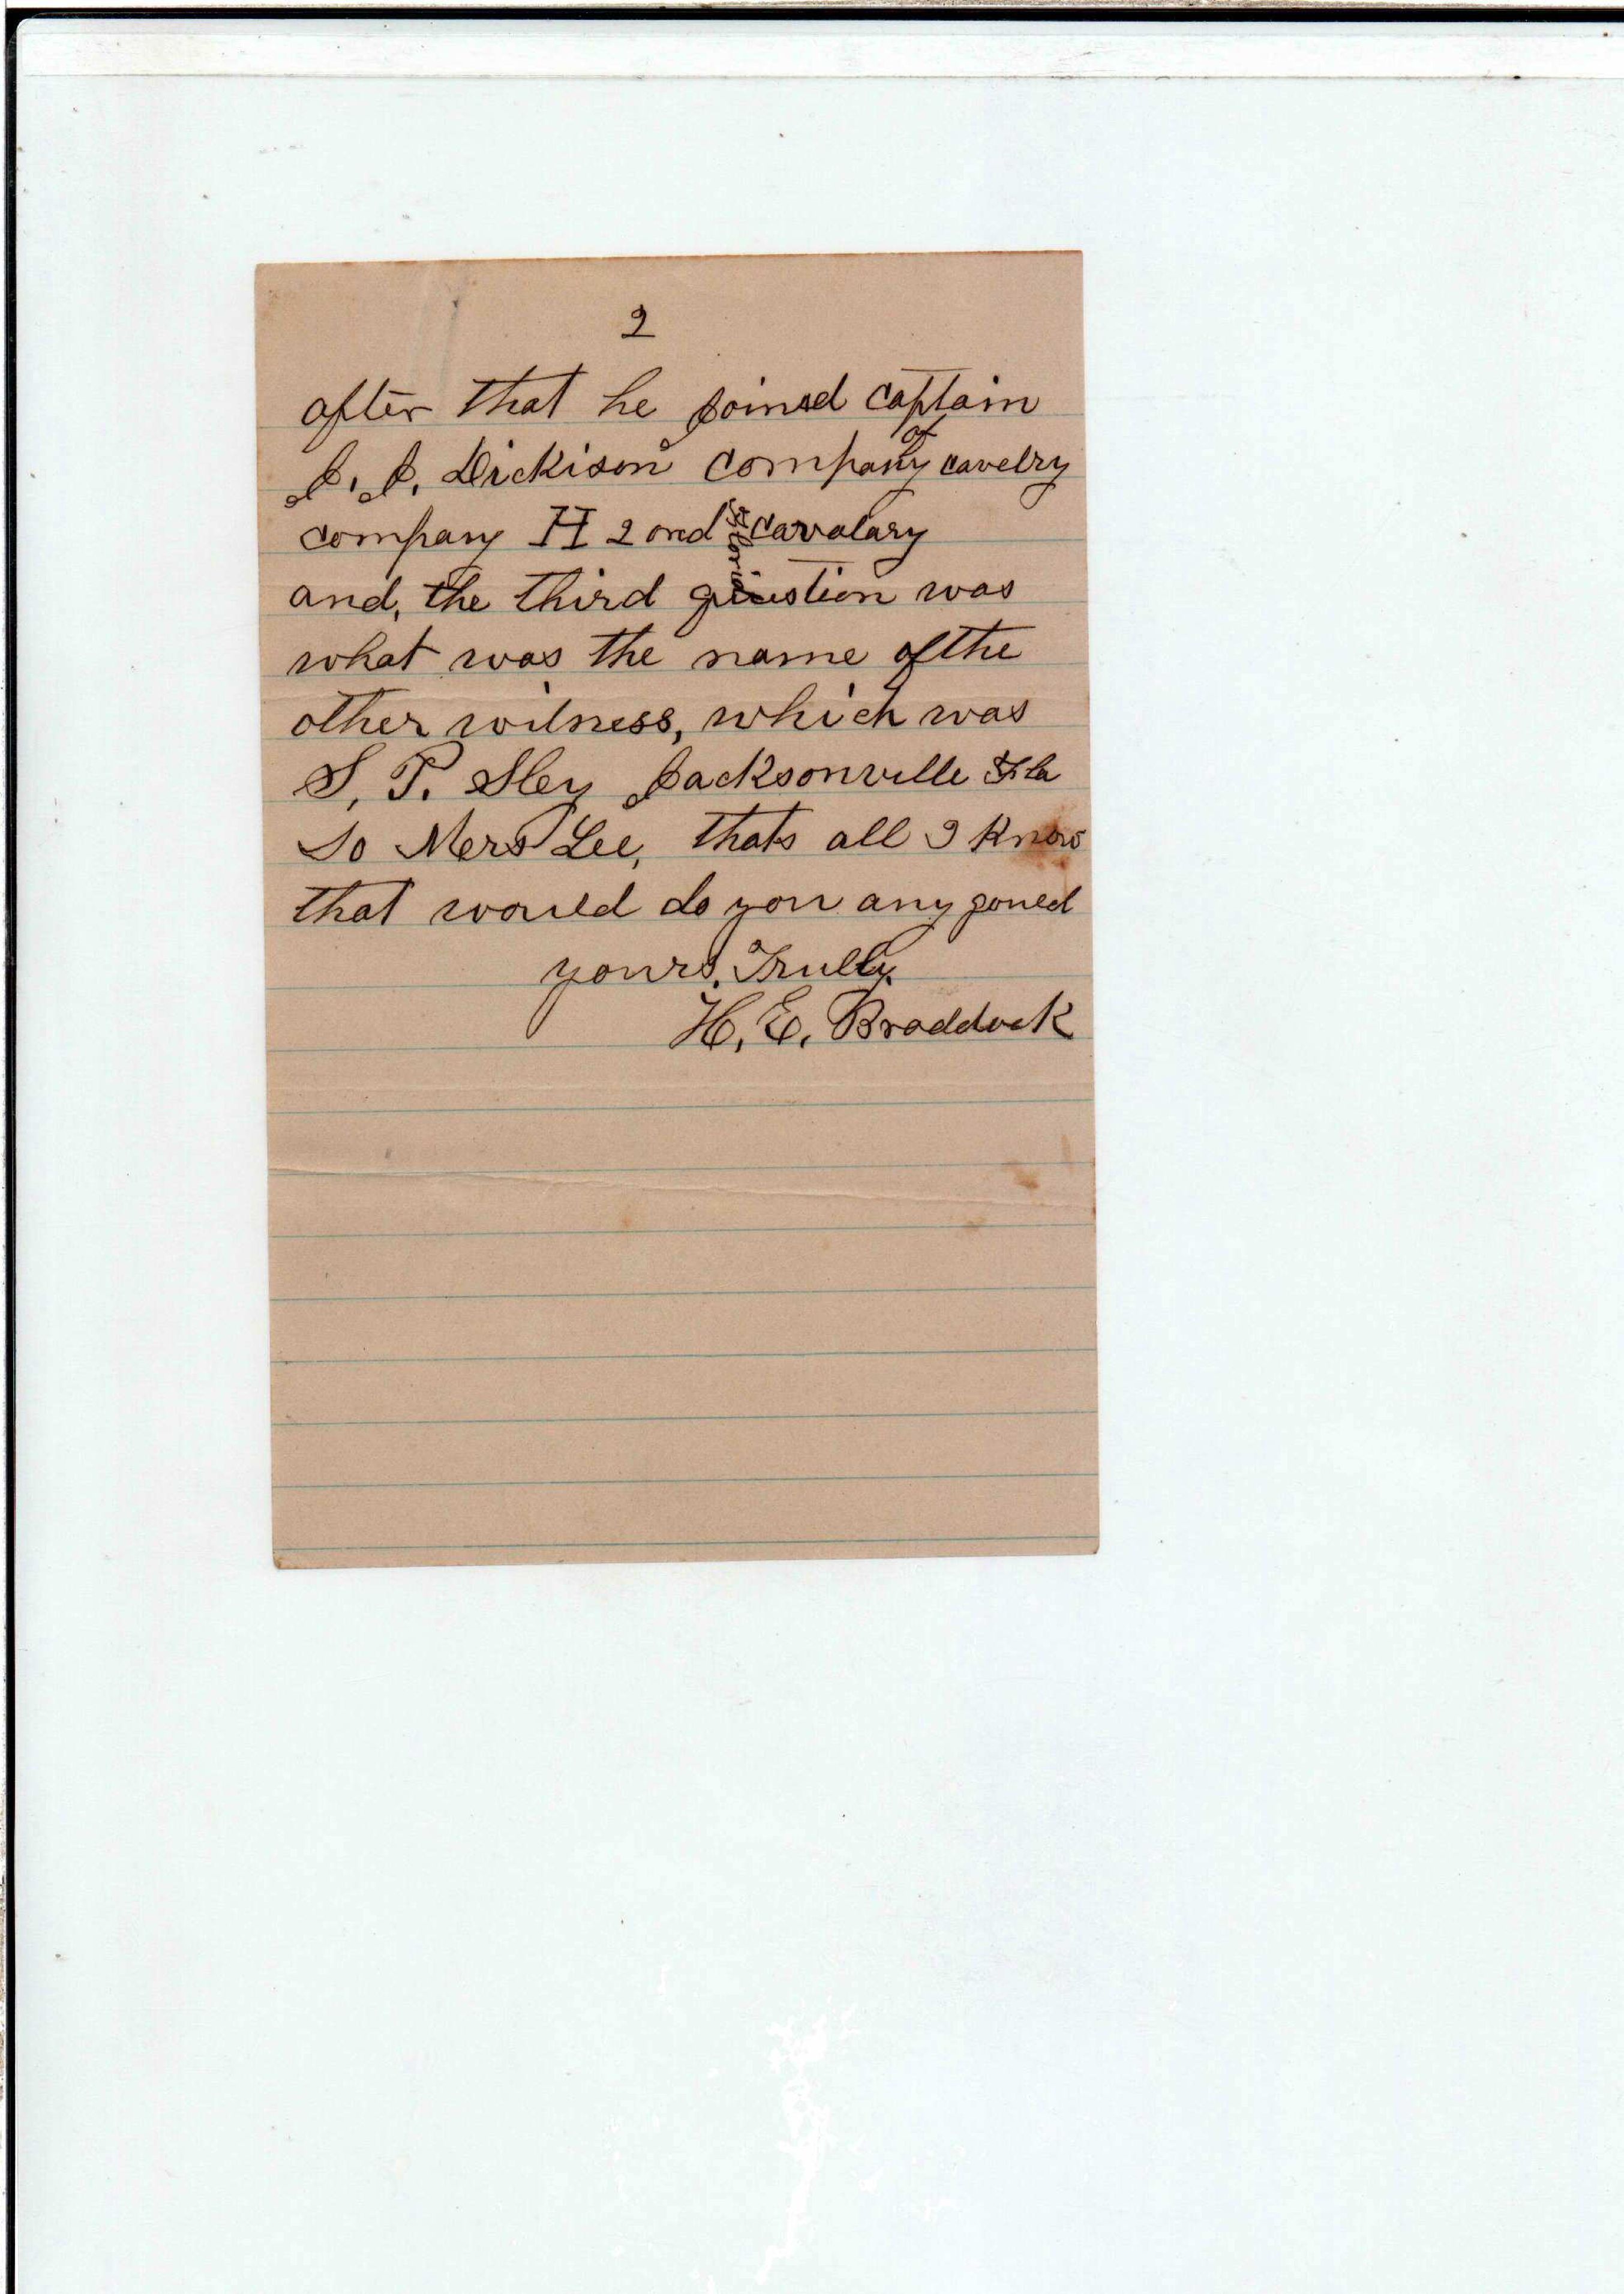 2
after that he joined captain
J. J. Dickison company of cavelry
company H 2ond Cavalary
and, the third question was
what was the name ofthe
other witness, which was
S, P. Sley Jacksonville Fla
So Mers Lee, thats all I know
that would do you any goued
yours, Trully.
H, E, Braddock